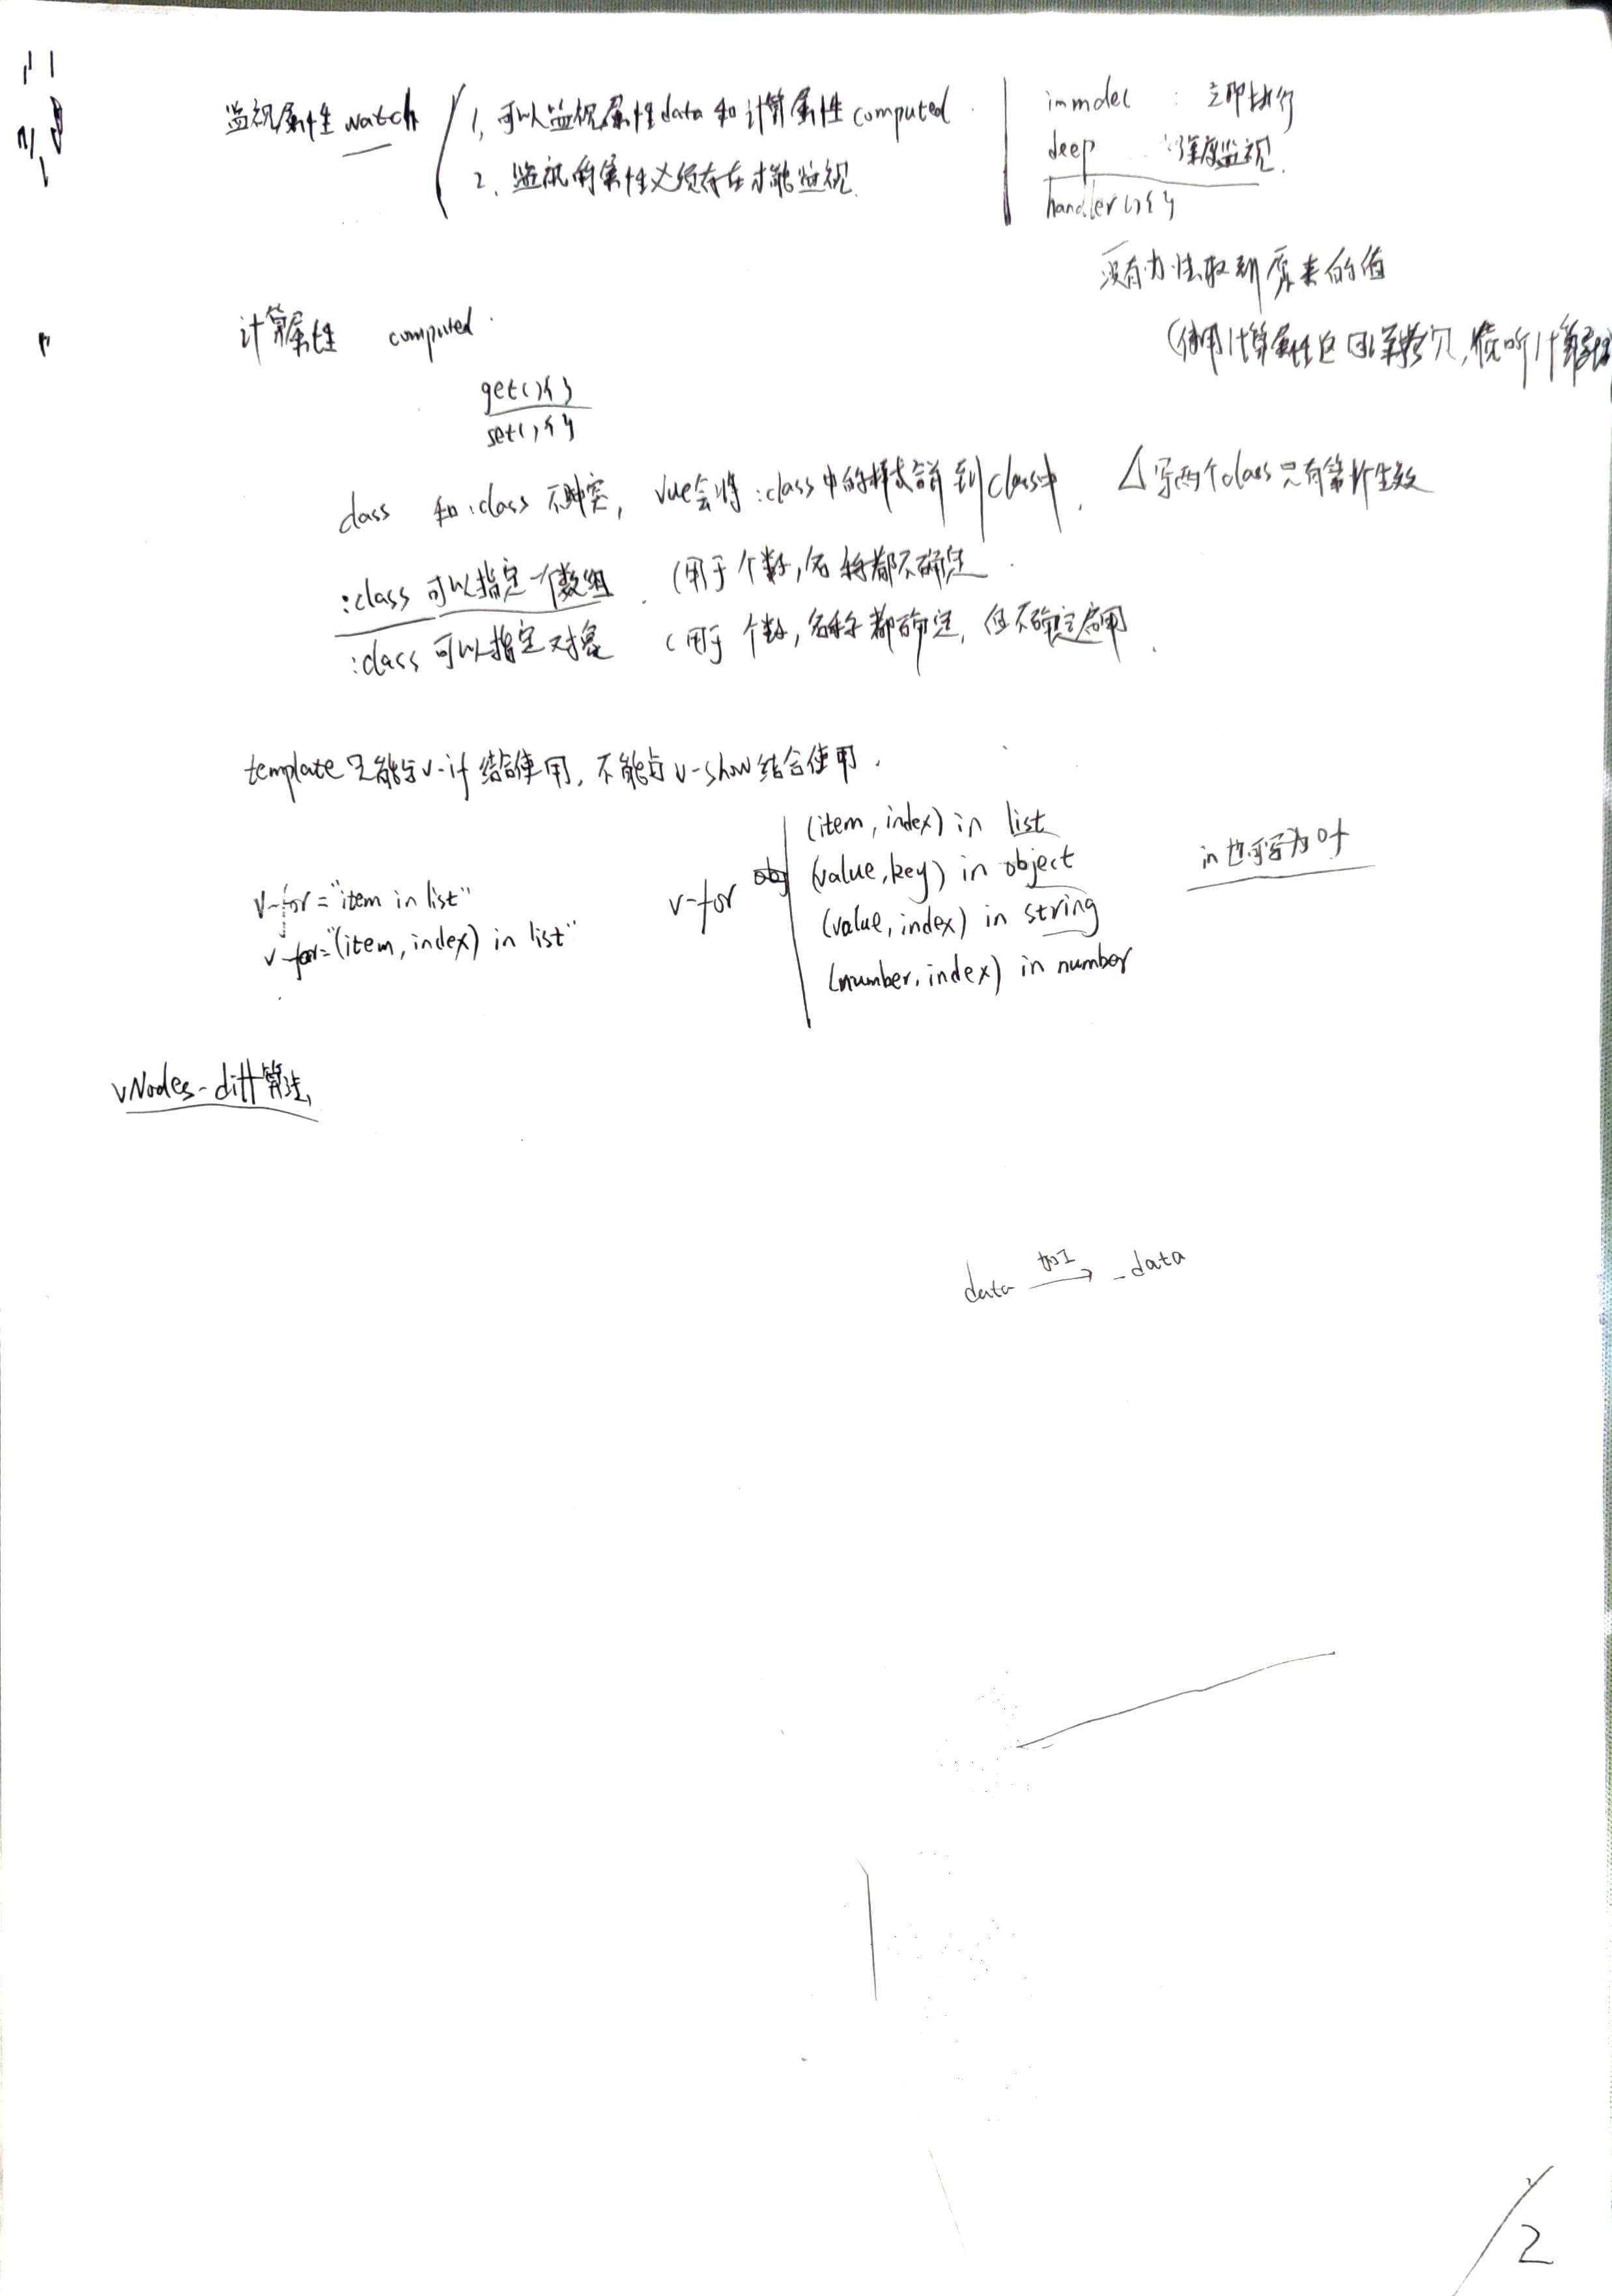 监视属性 watch
1、可以监视属性data和计算属性computed.
2、监视的属性必须存在才能监视.
immdel : 立即执行
deep : 深度监视.
handler(){}
没有办法取到原来的值
(使用计算属性返回深拷贝,侦听计算属性
计算属性 computed.
get(){}
set(){}
class 和:class 不冲突, vue会将:class中的样式合并到class中. △写两个class只有第一个生效
:class 可以指定一个数组. (用于个数,名称都不确定.
:class 可以指定对象 (用于个数,名称都确定,但不确定启用.
template只能与v-if结合使用,不能与v-show结合使用.
v-for="item in list"
v-for="(item, index) in list"
v-for
(item, index) in list
(value, key) in object
(value, index) in string
(number, index) in number
in也可写为of
vNodes-diff算法,
data 加工 → _data
2